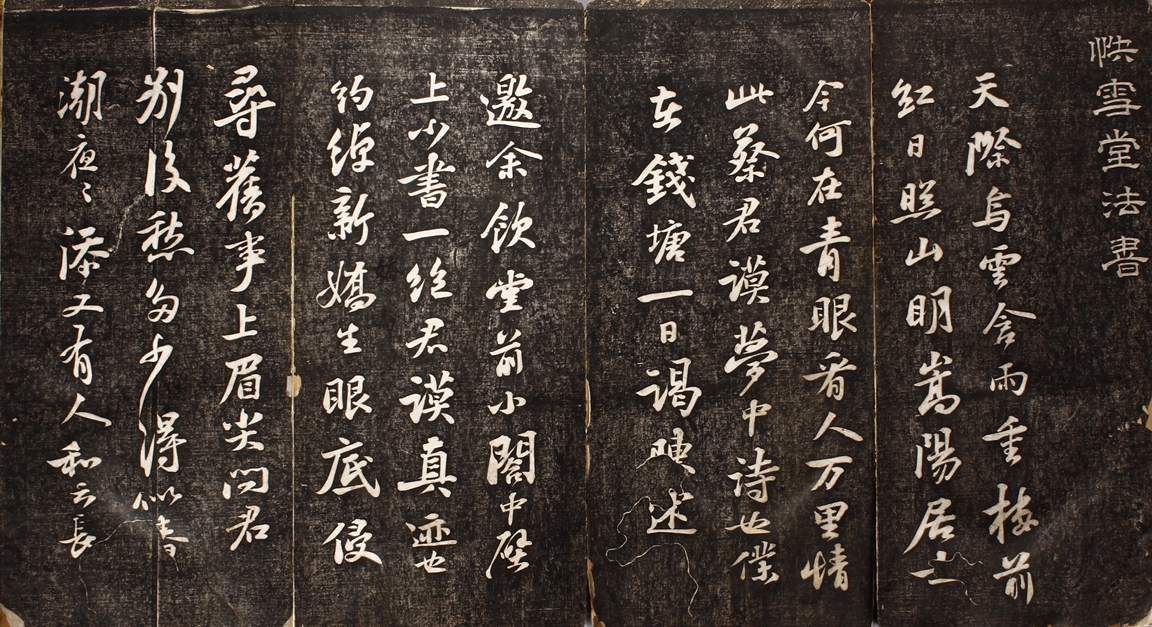 快雪堂法書
天際烏雲含雨重樓前
紅日照山明嵩陽居士
今何在青眼看人万里情
此蔡君謨夢中詩也僕
在錢塘一日謁陳述
邀余飲堂前小閣中壁
上小書一絕君謨真迹也
約綽新嬌生眼底侵
尋舊事上眉尖問君
別後愁多少得似春
潮夜〻添又有人和云長